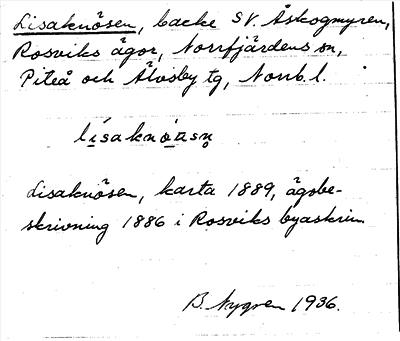 Lisaknösen, backe SV. Åskogmyren,
Rosviks ägor, Norrfjärdens sn,
Piteå och Älvsby tg, Norrb. l.
Lisaknösen, karta 1889, ägobe-
skrivning 1886 i Rosviks byaskrin
B. Nygren 1936.